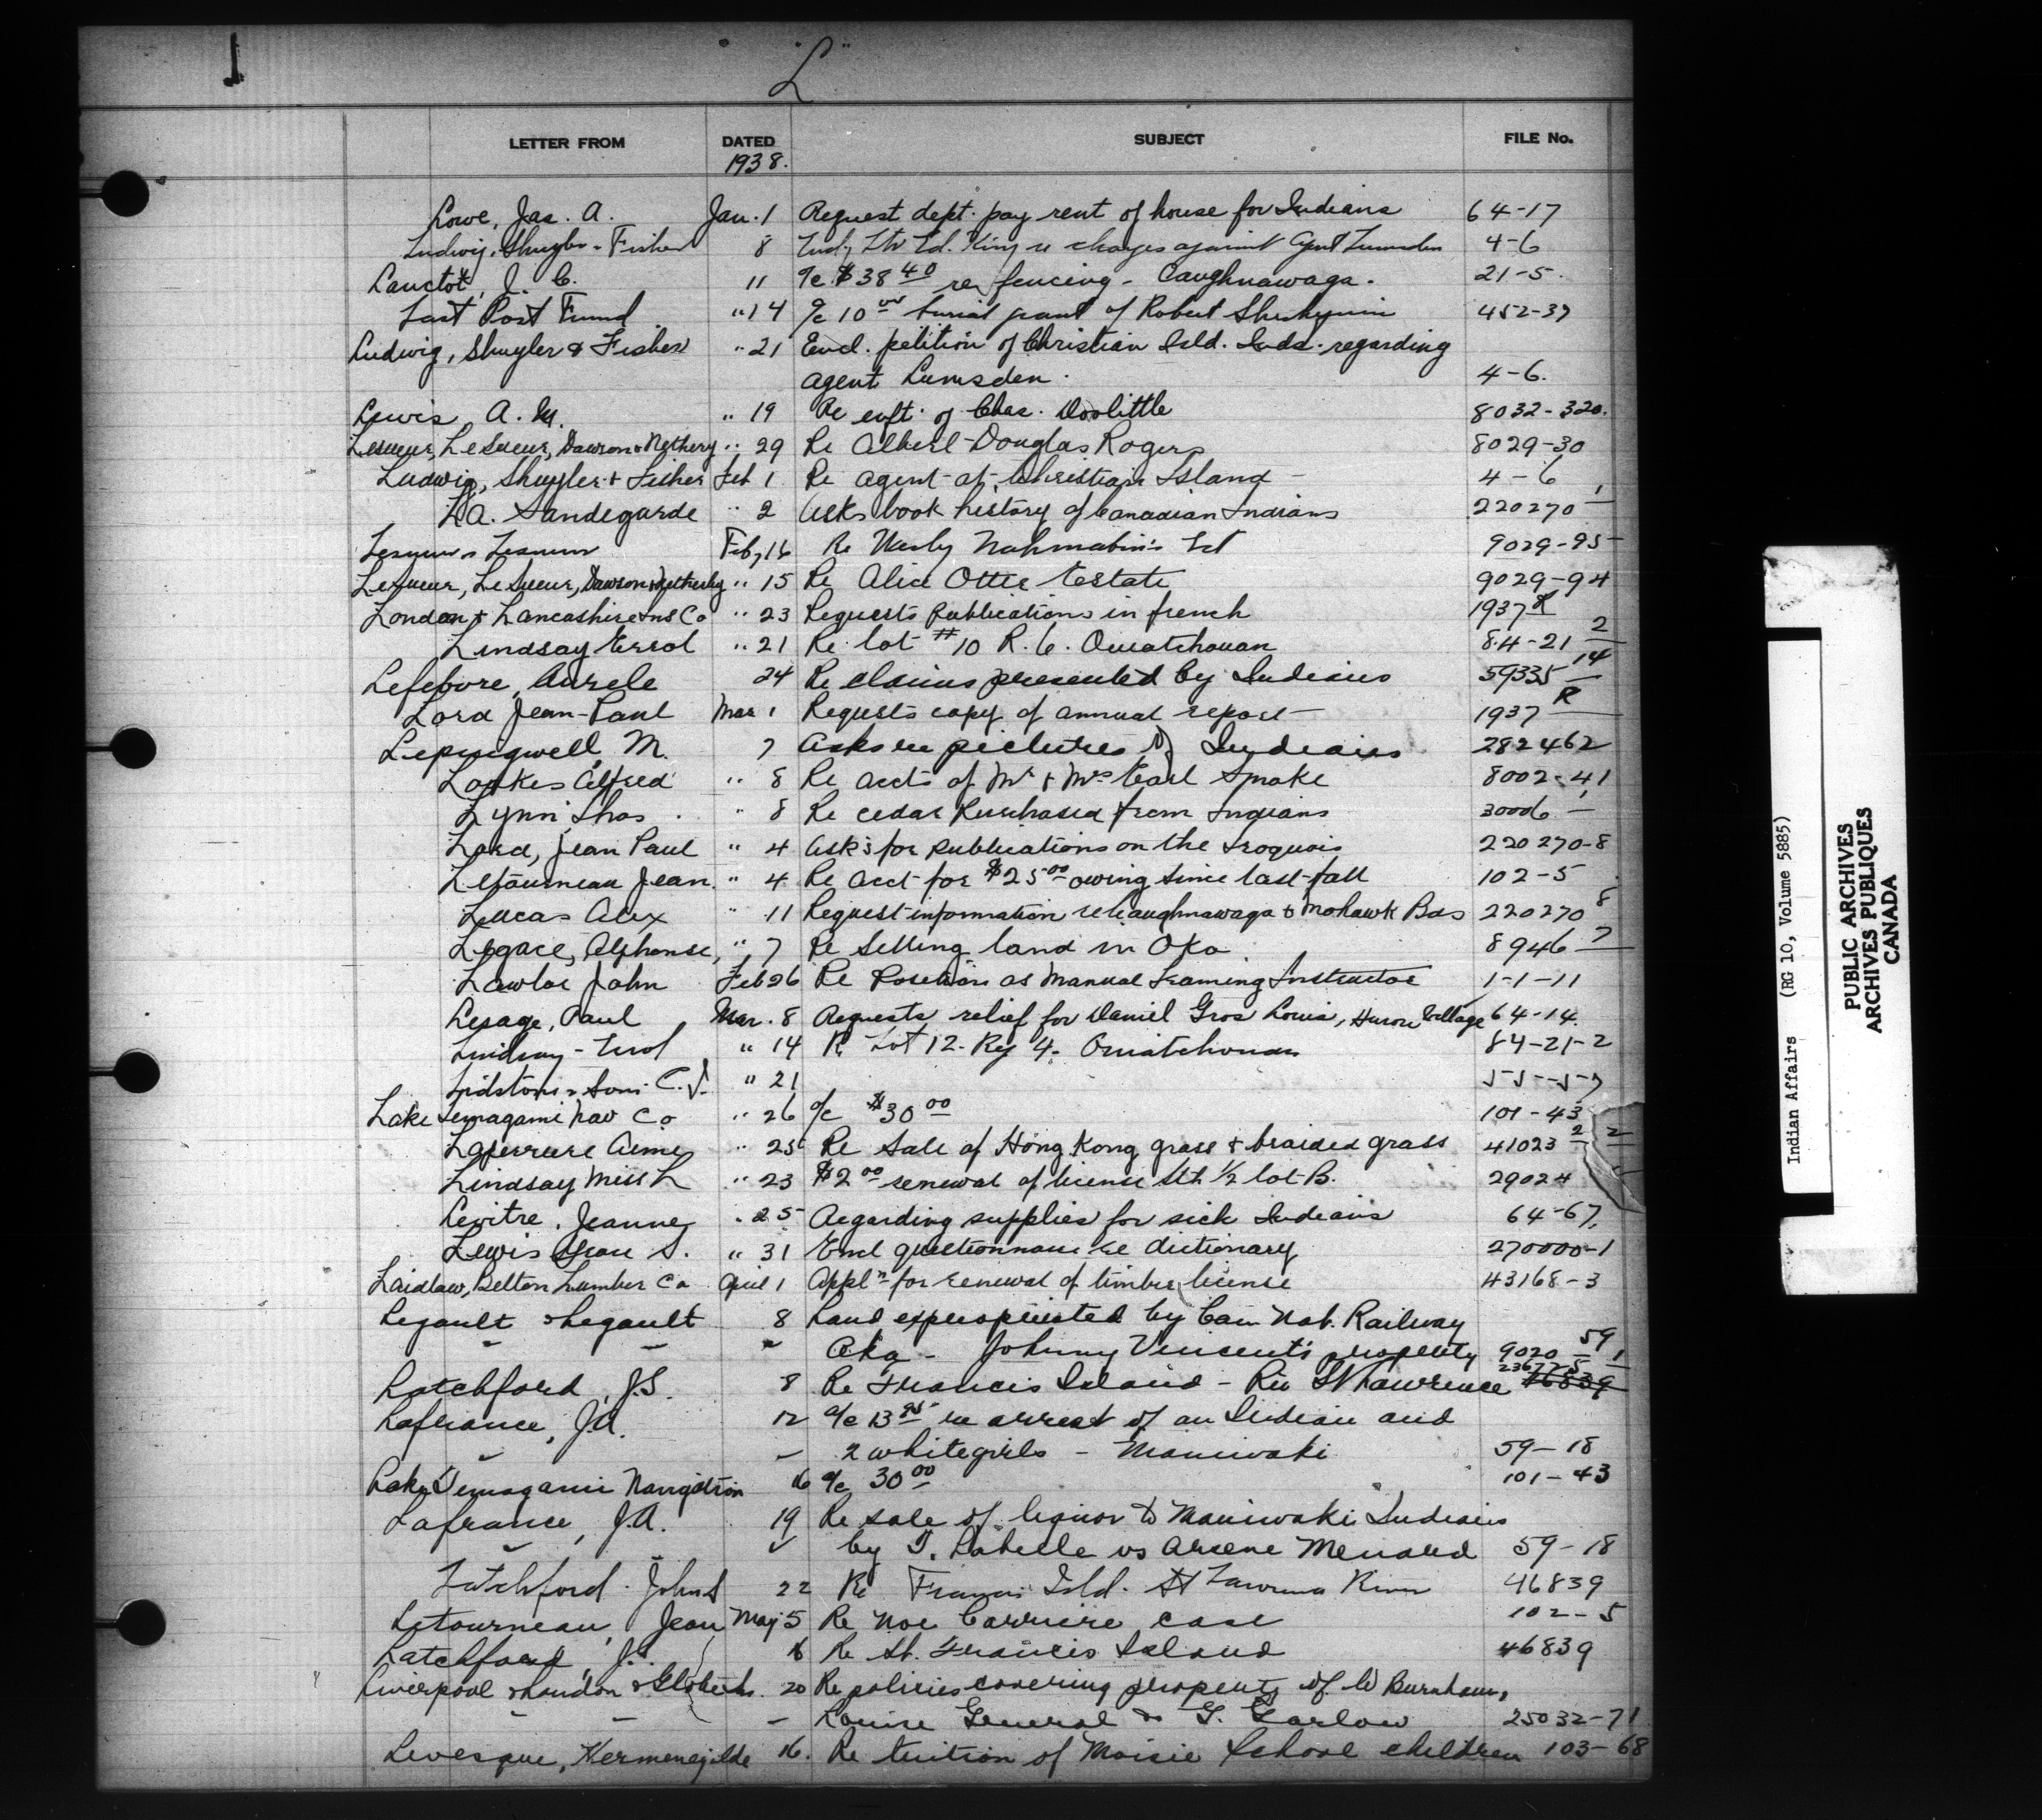 "L"
LETTER FROM DATED SUBJECT FILE No.
1938.
Lowe, Jas. A. Jan. 1 Request dept. pay rent of house for Indians 64-17
Ludwig, Shuyler & Fisher 8 Ltr Ed. King re charges against Agent Lumsden 4-6
Lanctot, J. C. 11 a/c $38 40 re fencing - Caughnawaga. 21-5.
Last Post Fund " 14 a/c 10 00 burial grant of Robert 452-37
Ludwig, Shuyler & Fisher " 21 Encl. petition of Christian Isld. Inds. regarding
agent Lumsden. 4-6.
Lewis, A. M. " 19 Re enft. of Chas. Doolittle 8032-320.
Lesueur, LeSueur, Dawson & Nethery " 29 Re Albert Douglas Rogers 8029-30
Ludwig, Shuyler & Fisher Feb 1 Re agent at Christian Island 4-6
La. Sandegarde " 2 Asks book history of Canadian Indians 220270-1
Lesueur & Lesueur Feb, 16 Re 9029-95
LeSueur, LeSueur, Dawson & Netherby " 15 Re Alice Otter Estate 9029-94
London & Lancashire Ins Co " 23 Requests publications in french 1937 R
Lindsay Errol " 21 Re lot #10 R. 6. Ouiatchouan 84-21 2
Lefebvre, Aurele 24 Re claims presented by Indians 59335 14
Lord Jean-Paul Mar 1 Requests copy of annual report 1937 R
Lepingwell, M. 7 Asks re pictures of Indians 282462
Loukes Alfred " 8 Re accts of Mr & Mrs Earl Smoke 8002-41
Lynn, Thos. " 8 Re cedar Purchased from Indians 30006-1
Lord, Jean Paul " 4 Asks for publications on the Iroquois 220270-8
Letourneau Jean. " 4 Re acct for $25 00 owing since last fall 102-5
Lucas Alex " 11 Request information re Caughnawaga & Mohawk Bds 220270 8
Legace, Alphonse, " 7 Re Selling land in Oka 8946 7
Lawlor John Feb 26 Re Position as Manual Training Instructor 1-1-11
Lesage, Paul Mar. 8 Requests relief for Daniel Gros Louis, Huron Village 64-14.
Lindsay - Errol " 14 Re Lot 12- Rg 4- Ouiatchouan 84-21-2
Lidstone & Sons C. J. " 21 55-57
Lake Temagami Nav Co " 26 a/c $30 00 101-43
Laferriere Aime " 25 Re Sale of Hong Kong grass & braided grass 41023 2 2
Lindsay Miss L " 23 $2 00 renewal of license Sth ½ lot B. 29024
Lewitre, Jeanne " 25 Regarding supplies for sick Indians 64-67,
Lewis S. " 31 Encl questionnaire re dictionary 270000-1
Laidlaw, Belton Lumber Co April 1 Appln for renewal of timber license 43168-3
Legault & Legault 8 Land expropriated by Can Nat. Railway
" " " Oka - Johnny Vincent's property 9020-59 1
Latchford, J.S. 8 Re Francis Island - Riv St Lawrence 236725 46839
Lafrance, J.A. 12 a/c 13 95 re arrest of an Indian and
" " 2 white girls - Maniwaki 59-18
Lake Temagami Navigation 16 a/c 30 00 101-43
Lafrance, J.A. 19 Re sale of liquor to Maniwaki Indians
" " by T. Labelle vs Arsene Menard 59-18
Latchford. John S 22 Re Francis Isld. St Lawrence River 46839
Letourneau, Jean May 5 Re Noe Carriere case 102-5
Latchford, J.S. 16 Re St. Francis Island 46839
Liverpool & London & Globe Ins. 20 Re policies covering property of W Burnham,
" " " Louise General & G. Garlow 25032-71
Levesque, Hermenegilde 16. Re tuition of Moisie School children 103-68
Indian Affairs (RG 10, Volume 5885)
PUBLIC ARCHIVES
ARCHIVES PUBLIQUES
CANADA